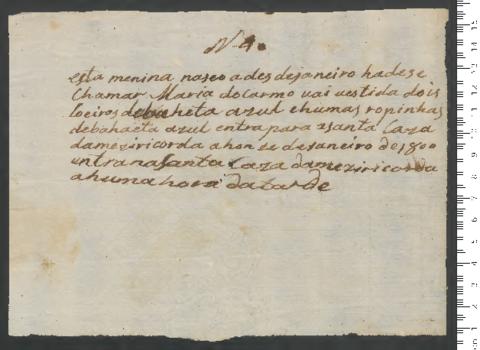 N 4.
esta menina naseo a des de janeiro hadese
Chamar Maria do Carmo vai vestida dois
coeiros de baheta azul ehumas ropinhas
debahaeta azul entra para a santa Caza
dameziricorda a hon ze de janeiro de 1800
untra na Santa Caza dameziricorda
a huma hora da tarde